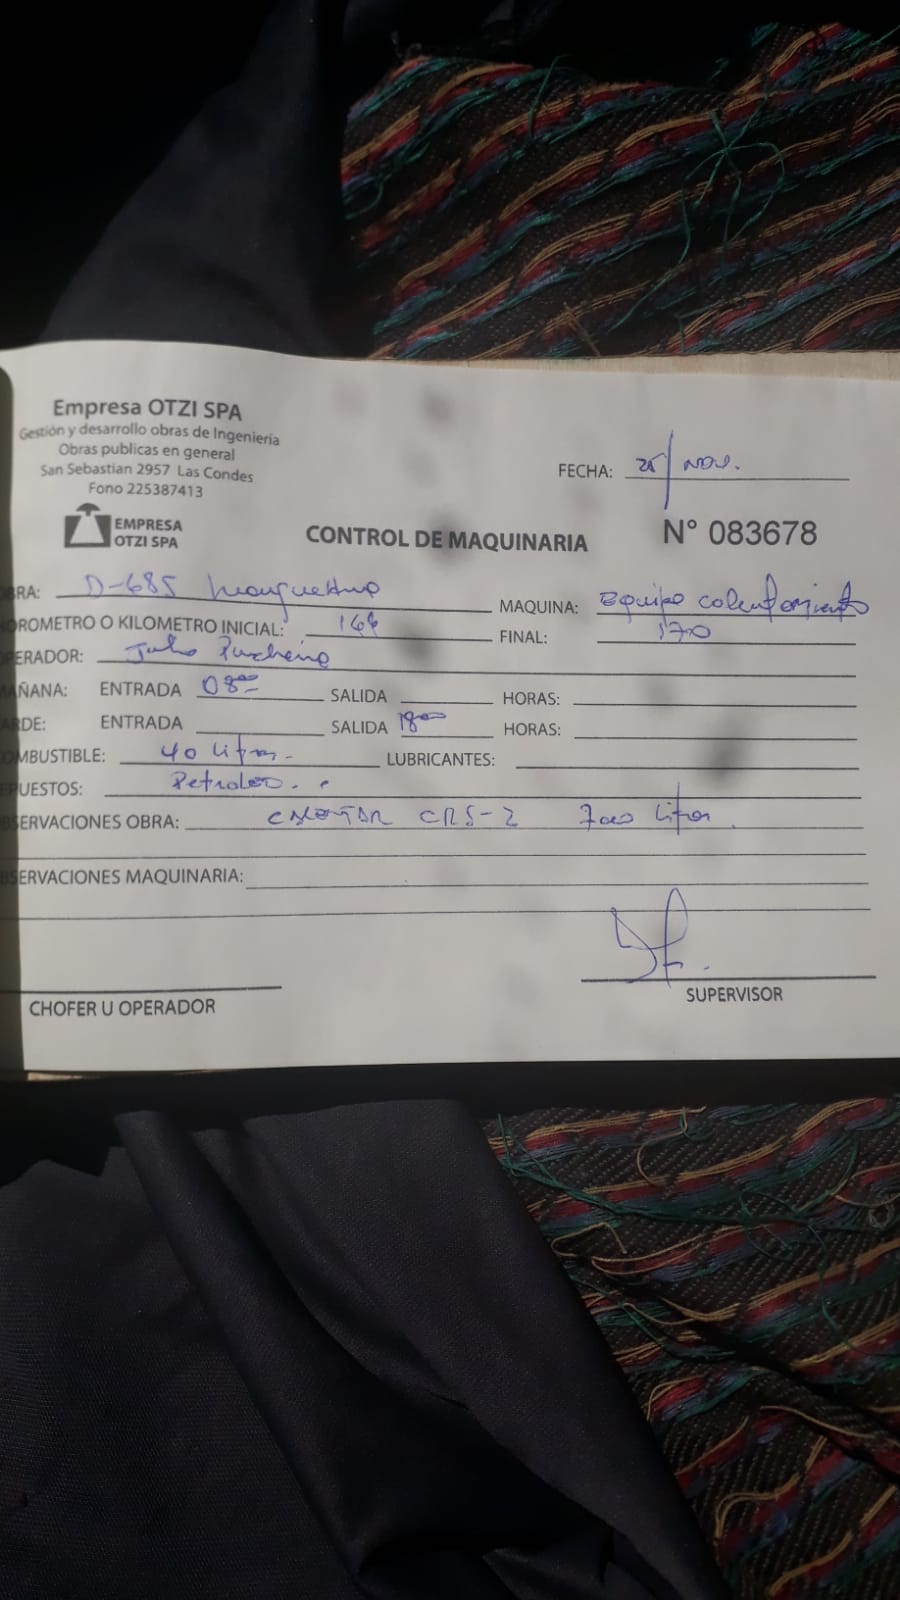 Empresa OTZI SPA
Gestión y desarrollo obras de Ingeniería
Obras publicas en general
San Sebastian 2957 Las Condes
Fono 225387413
EMPRESA
OTZI SPA
FECHA: 25/ NOV.
CONTROL DE MAQUINARIA
N° 083678
BRA: D-685
MAQUINA: Equipo calentamiento
OROMETRO O KILOMETRO INICIAL: 166
FINAL: 170
PERADOR: Julio
AÑANA: ENTRADA 08°° SALIDA HORAS:
ARDE: ENTRADA SALIDA 18°° HORAS:
OMBUSTIBLE: 40 Litros. LUBRICANTES:
EPUESTOS: Petroleo.
BSERVACIONES OBRA: CALENTAR CRS-2 7000 Litros.
BSERVACIONES MAQUINARIA:
CHOFER U OPERADOR
SUPERVISOR